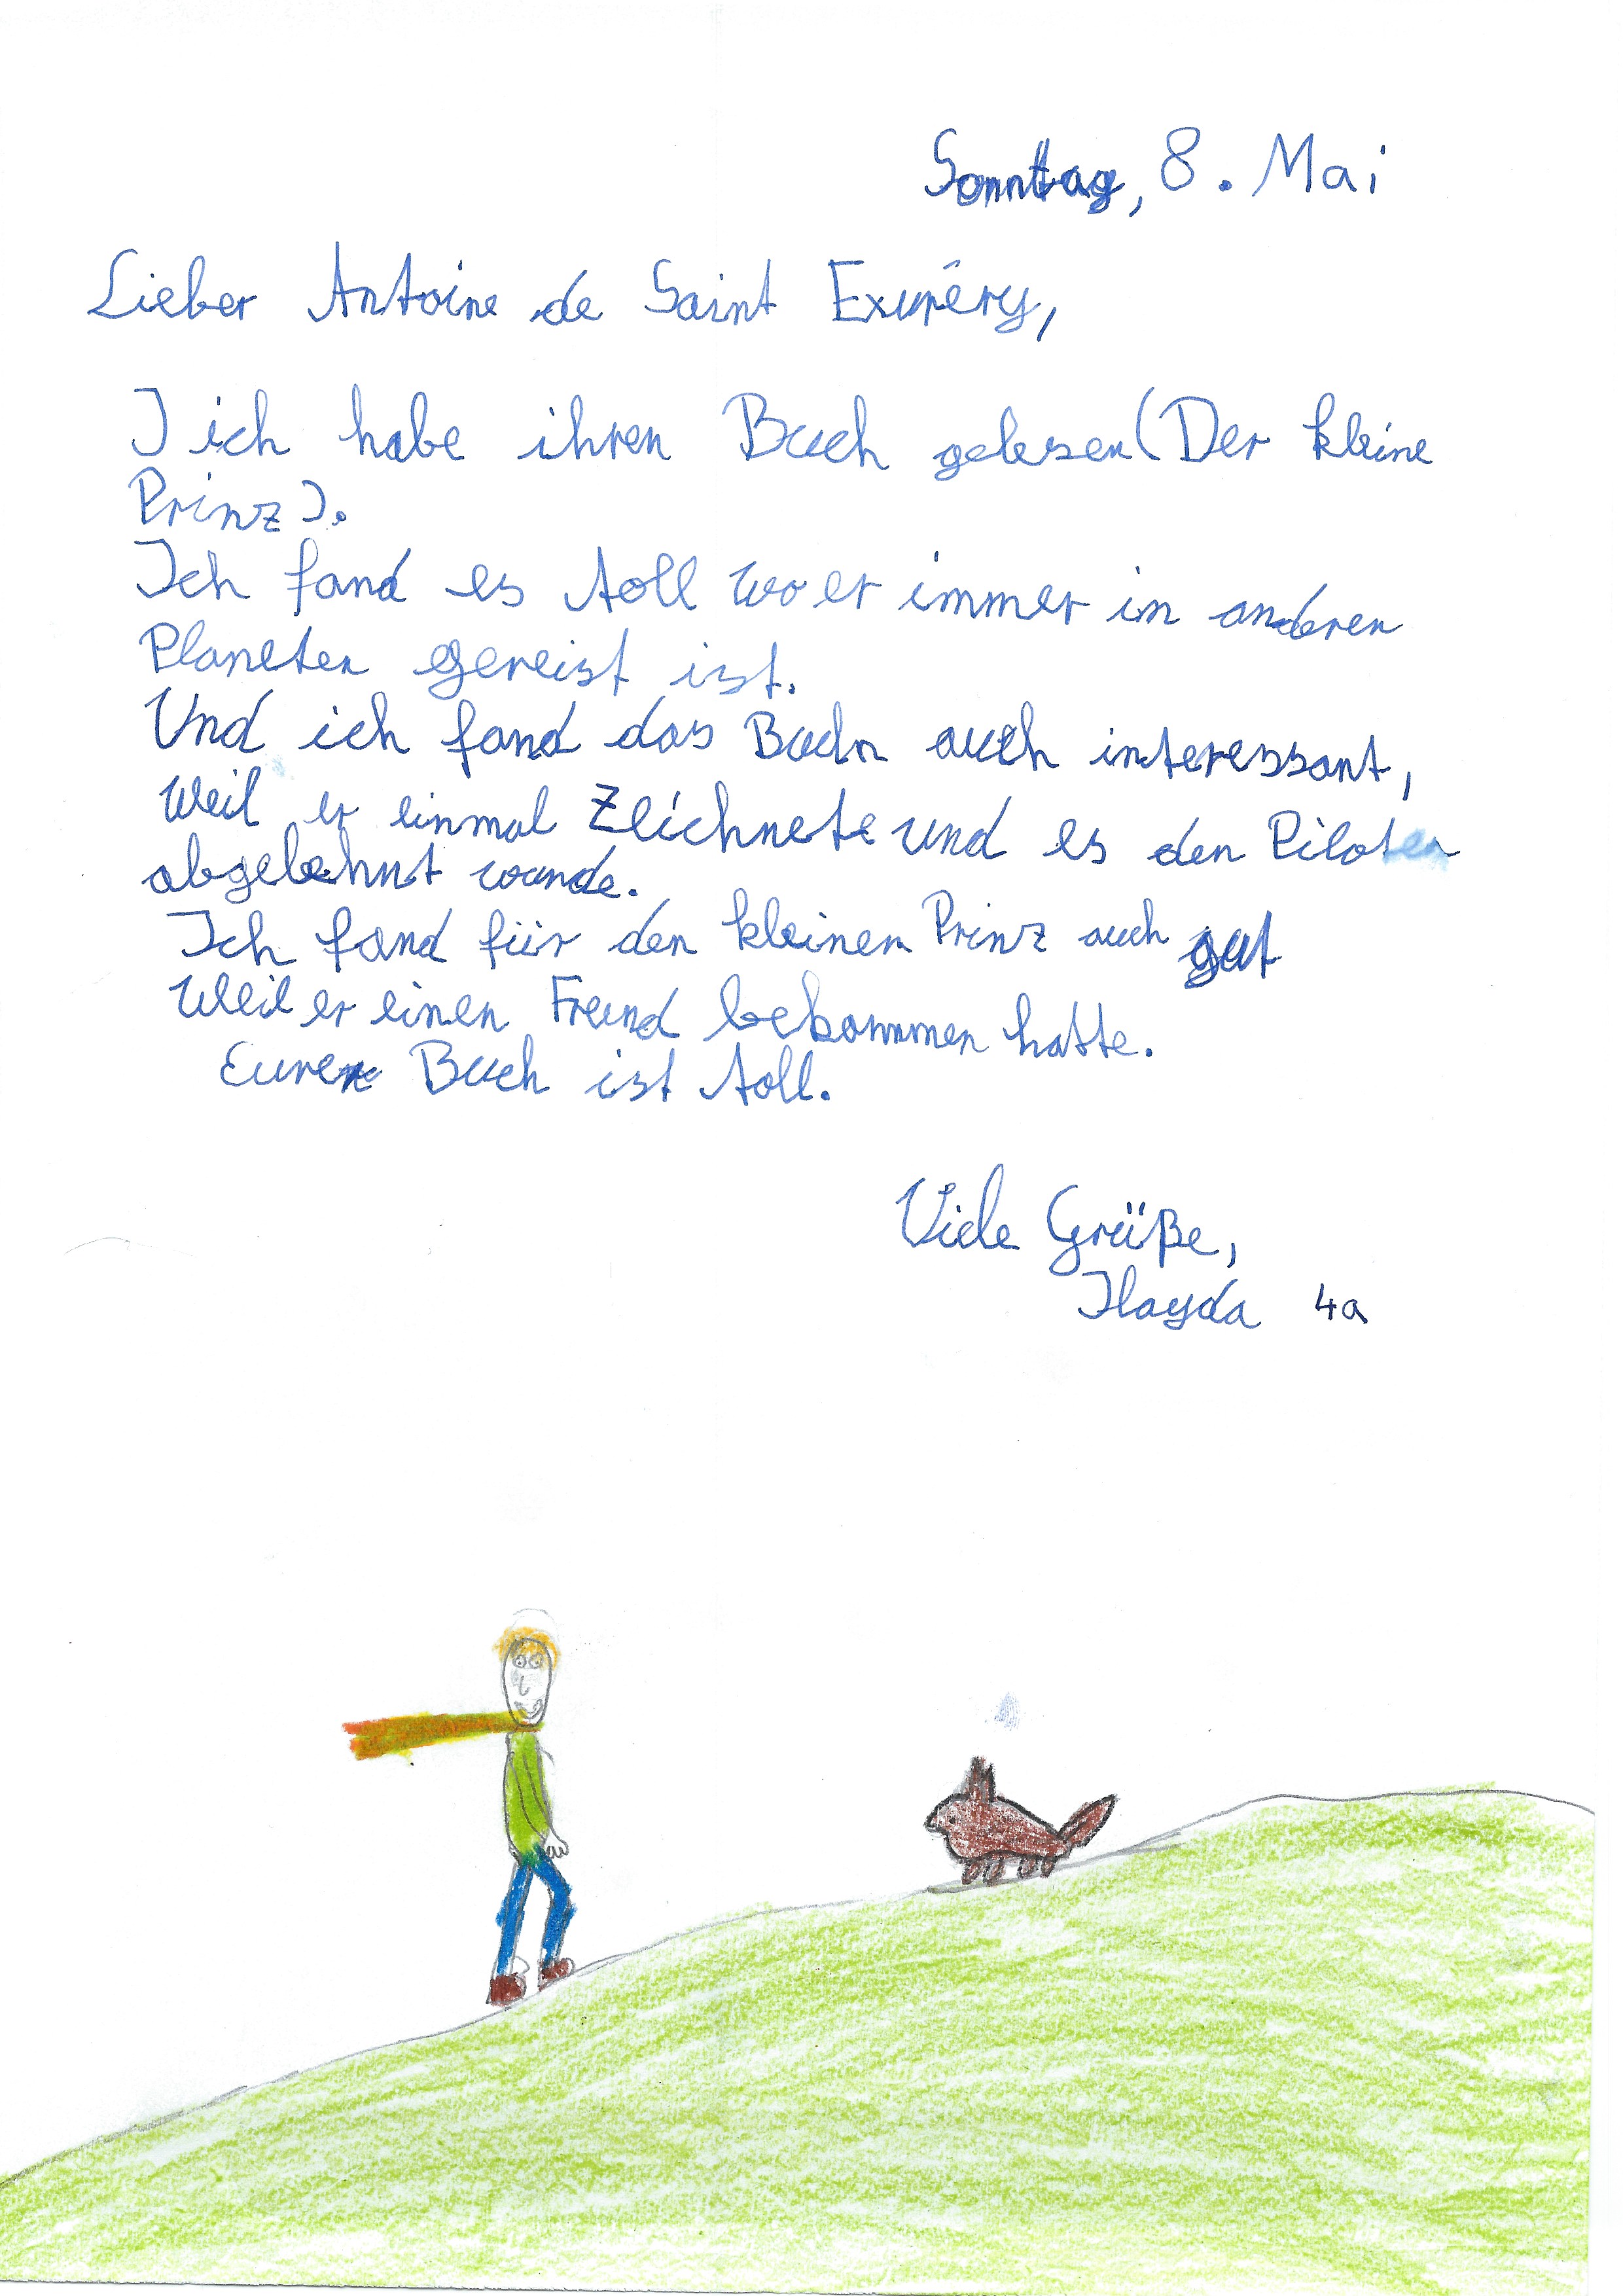 Sonntag, 8. Mai
Lieber Antoine de Saint Exupéry,
I ich habe ihren Buch gelesen (Der kleine
Prinz).
Ich fand es toll wo er immer in anderen
Planeten gereist ist.
Und ich fand das Buch auch interessant,
Weil er einmal Zeichnete und es den Piloten
abgelehnt wurde.
Ich fand für den kleinen Prinz auch gut
Weil er einen Freund bekommen hatte.
Eure Buch ist toll.
Viele Grüße,
Ilayda 4a